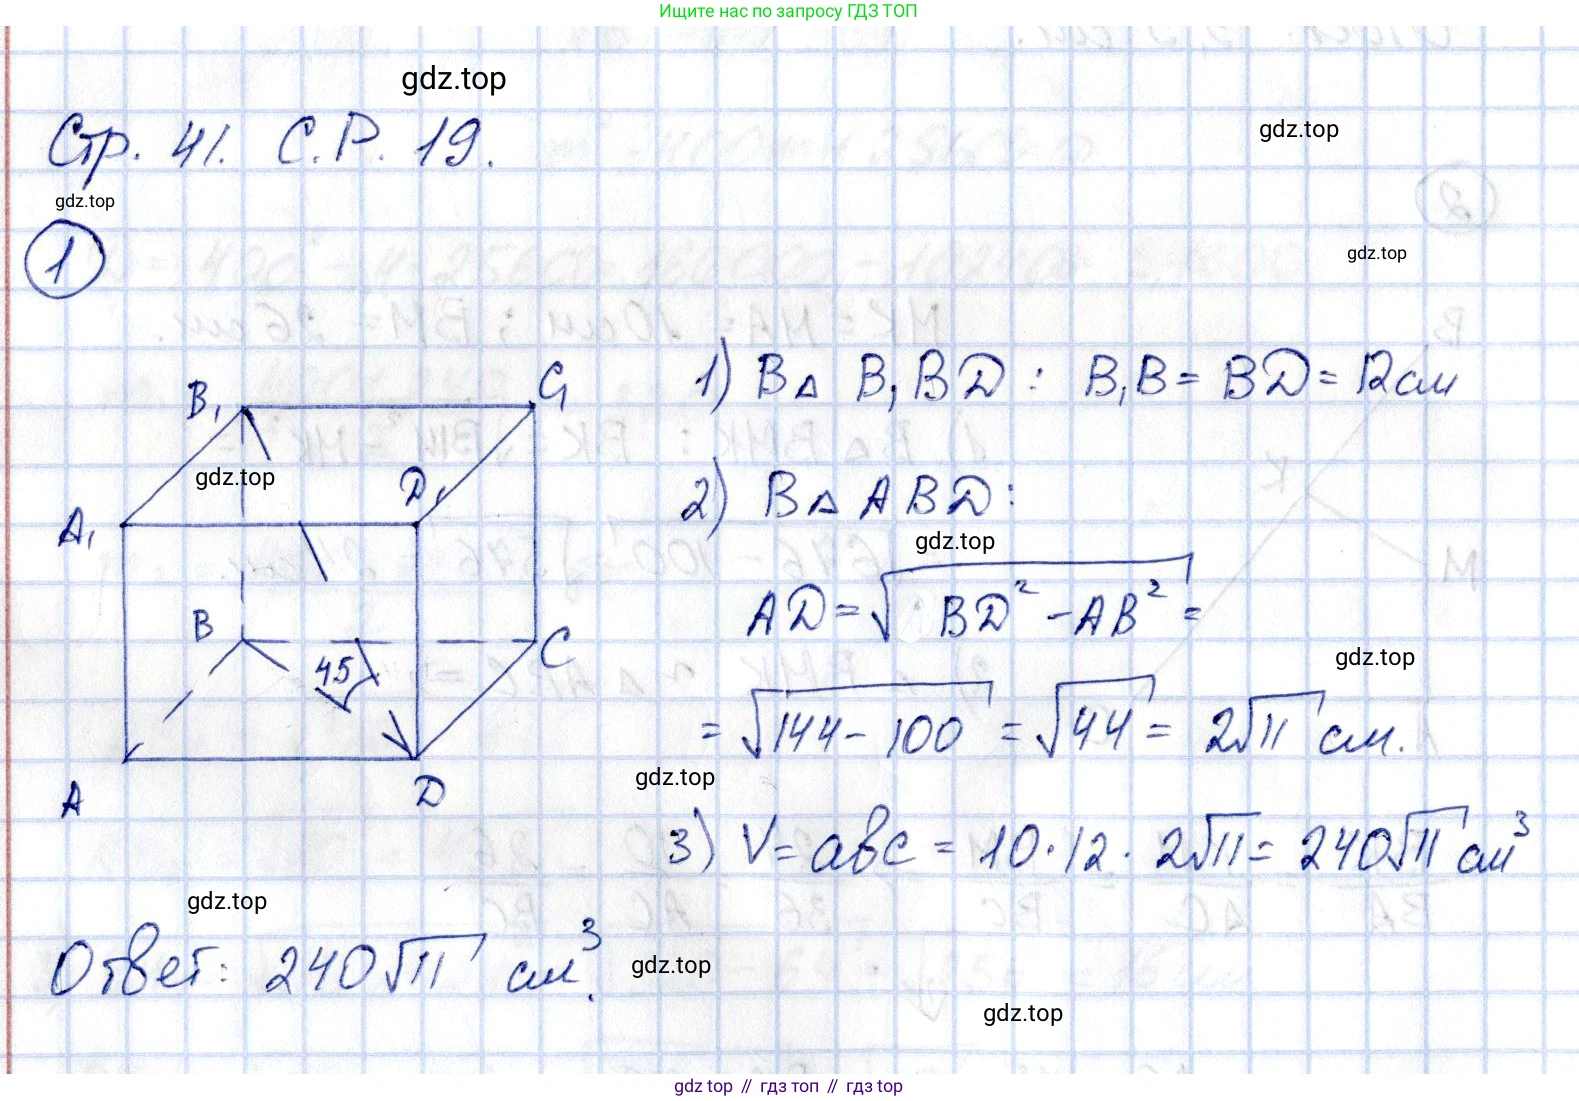 Ищите нас по запросу ГДЗ ТОП
gdz.top
Стр. 41. С.Р. 19.
gdz.top
gdz.top
1
gdz.top
B₁ C₁
1) В△ B₁BD : B₁B = BD = 12см
gdz.top
D₁
A₁
2) В△ ABD :
gdz.top
AD = √(BD² - AB²) =
B
45
C
gdz.top
= √(144 - 100) = √44 = 2√11 см.
gdz.top
A D
3) V = abc = 10 · 12 · 2√11 = 240√11 см³
gdz.top
Ответ: 240√11 см³.
gdz.top
gdz.top
gdz.top // гдз топ // гдз top